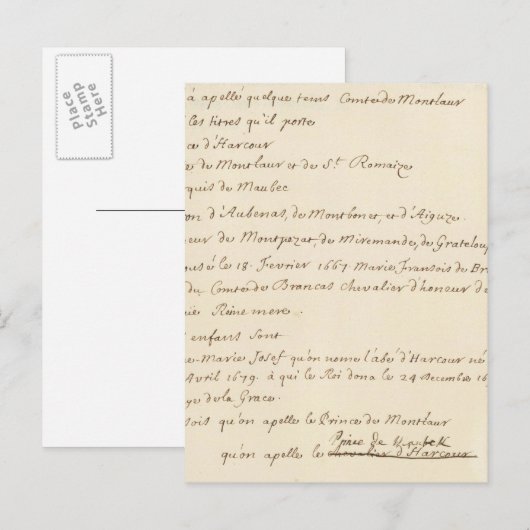 Place
Stamp
Here
à apellé quelque tems Comte de Montlaur
les titres qu'il porte
ce d'Harcour
e de Montlaur et de St. Romaize
quis de Maubec
on d'Aubenas, de Montbonet, et d'Aiguze.
eur de Montpezat, de Miremande, de Grateloup
ousé le 18. Fevrier 1667 Marie Fransoise de Br
du Comte de Brancas Chevalier d'honeur de
Reine mere.
enfans sont
e-Marie Josef qu'on nome l'abé d'Harcour né
Avril 1679. à qui le Roi dona le 24 Decembre 16
ye de la Grace.
sois qu'on apelle le Prince de Montlaur
Prince de
qu'on apelle le chevalier d'Harcour